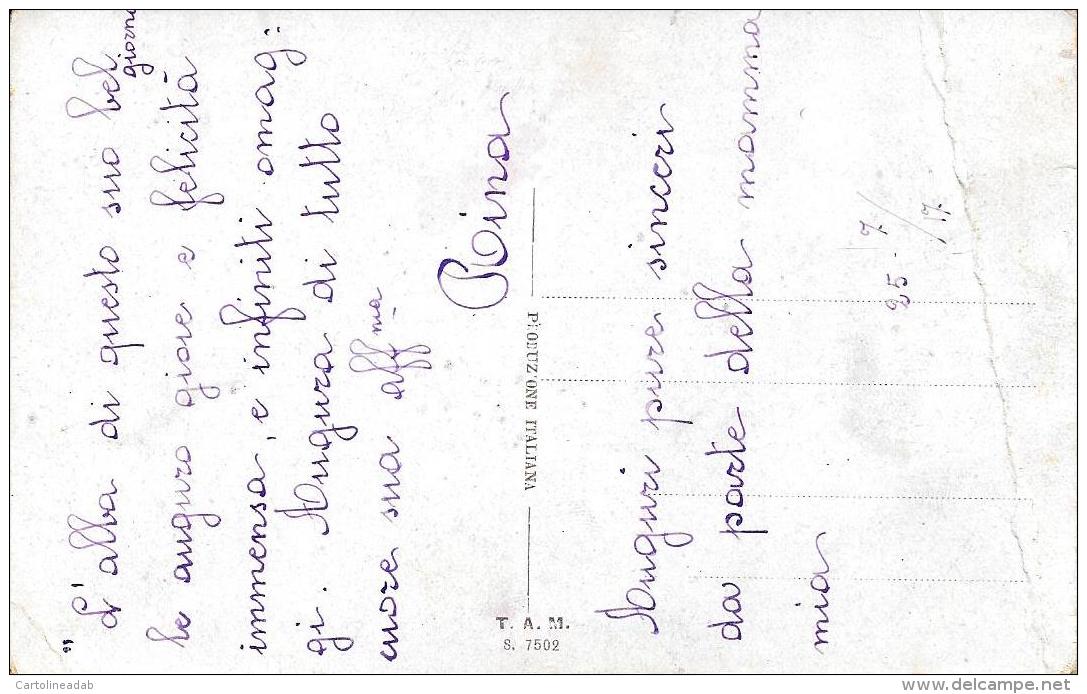 "L'alba di questo suo bel
giorno
le auguro gioie e felicità
immensa, e infiniti omag-
gi. Augura di tutto
cuore sua aff.ma
Rina
PRODUZIONE ITALIANA
T. A. M.
S. 7502
Auguri pure sinceri
da parte della mamma
mia
25-7/17
Cartolineadab
delcampe.net